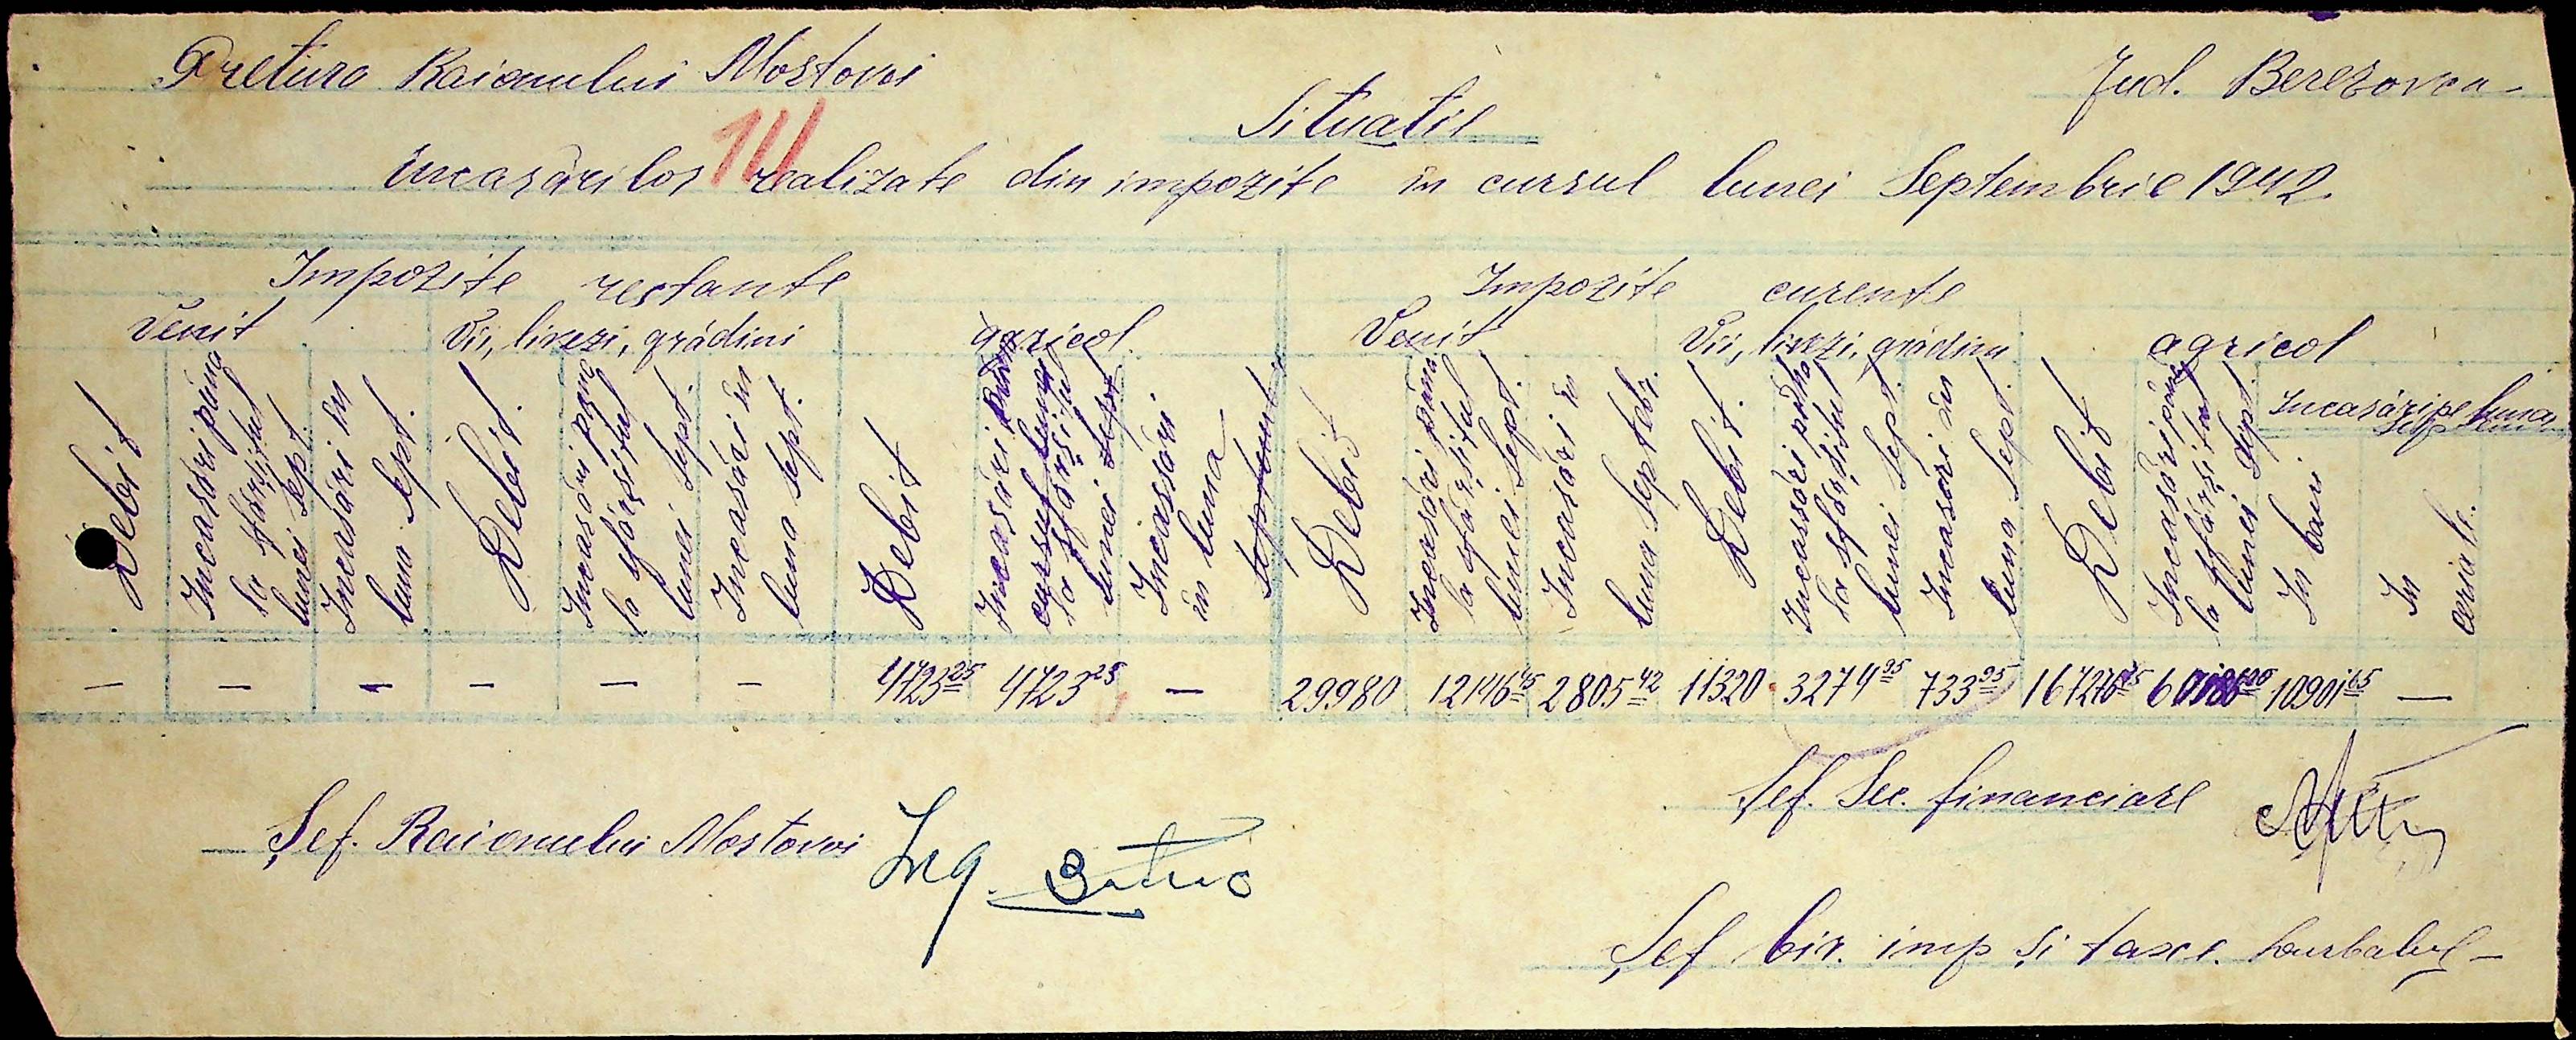 Pretura Raionului Mostovoi
Jud. Berezovca
Situatie
111
incasărilor realizate din impozite in cursul lunei Septembrie 1942.
Impozite restante
Impozite curente
Venit
Vii, livezi, grădini
agricol
Venit
Vii, livezi, grădini
agricol
Debit
Incasări până la sfârșitul lunei Sept.
Incasări in luna Sept.
Debit.
Incasări până la sfârșitul lunei Sept.
Incasări in luna Sept.
Debit
Incasări până la sfârșitul lunei Sept
Incassări in luna
Debit
Incasări până la sfârșitul lunei Sept.
Incasări in luna Septebr.
Debit.
Incassări până la sfârșitul lunei Sept.
Incasări in luna Sept.
Debit
Incasări până la sfârșitul lunei Sept.
Incasări pe luna
In bani
In
— — — — — — 4723 25 4723 25 — 29980 12146 45 2805 42 11320 3274 95 733 95 10901 65 —
Șef. Raionului Mostovoi Ing.
Șef. Sec. financiare
Șef bir. imp și taxe.